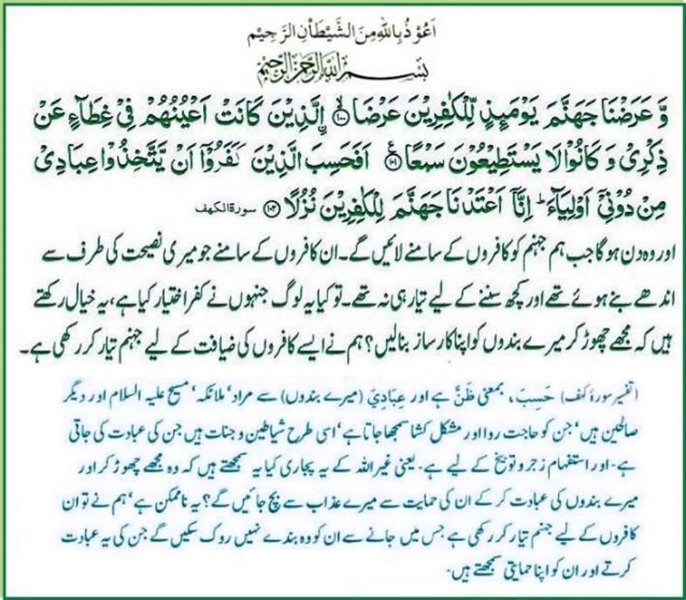 اَعُوْذُ بِاللّٰهِ مِنَ الشَّيْطٰانِ الرَّجِيْمِ
بِسْمِ اللّٰهِ الرَّحْمٰنِ الرَّحِيْمِ
وَّ عَرَضْنَا جَهَنَّمَ يَوْمَىِٕذٍ لِّلْكٰفِرِيْنَ عَرْضَا ۙ﴿۱۰۰﴾ اِلَّذِيْنَ كَانَتْ اَعْيُنُهُمْ فِيْ غِطَآءٍ عَنْ
ذِكْرِيْ وَ كَانُوْا لَا يَسْتَطِيْعُوْنَ سَمْعًا ﴿۱۰۱﴾ۧ اَفَحَسِبَ الَّذِيْنَ كَفَرُوْۤا اَنْ يَّتَّخِذُوْا عِبَادِيْ
مِنْ دُوْنِيْۤ اَوْلِيَآءَ ؕ اِنَّاۤ اَعْتَدْنَا جَهَنَّمَ لِلْكٰفِرِيْنَ نُزُلًا ﴿۱۰۲﴾ سورة الكهف
اور وہ دن ہوگا جب ہم جہنم کو کافروں کے سامنے لائیں گے۔ ان کافروں کے سامنے جو میری نصیحت کی طرف سے
اندھے بنے ہوئے تھے اور کچھ سننے کے لیے تیار ہی نہ تھے۔ تو کیا یہ لوگ جنہوں نے کفر اختیار کیا ہے، یہ خیال رکھتے
ہیں کہ مجھے چھوڑ کر میرے بندوں کو اپنا کارساز بنا لیں؟ ہم نے ایسے کافروں کی ضیافت کے لیے جہنم تیار کر رکھی ہے۔
(تفسیر سورۂ کہف) حَسِبَ، بمعنی ظَنَّ ہے اور عِبَادِيْ (میرے بندوں) سے مراد‘ ملائکہ‘ مسیح علیہ السلام اور دیگر
صالحین ہیں‘ جن کو حاجت روا اور مشکل کشا سمجھا جاتا ہے‘ اسی طرح شیاطین و جنات ہیں جن کی عبادت کی جاتی
ہے۔ اور استفہام زجر و توبیخ کے لیے ہے۔ یعنی غیر اللہ کے یہ پجاری کیا یہ سمجھتے ہیں کہ وہ مجھے چھوڑ کر اور
میرے بندوں کی عبادت کر کے ان کی حمایت سے میرے عذاب سے بچ جائیں گے؟ یہ ناممکن ہے‘ ہم نے تو ان
کافروں کے لیے جہنم تیار کر رکھی ہے جس میں جانے سے ان کو وہ بندے نہیں روک سکیں گے جن کی یہ عبادت
کرتے اور ان کو اپنا حمایتی سمجھتے ہیں۔